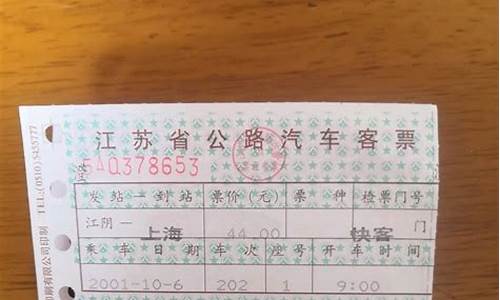 江苏省公路汽车客票
5AQ378653
发站—到站 票价(元) 票种 检票门号
江阴— 上海 44.00 快客 门
乘车日期 车次 座号 开车时间
2001-10-6 202 1 9:00
印刷有限公司印制 TEL:(0510)5435777